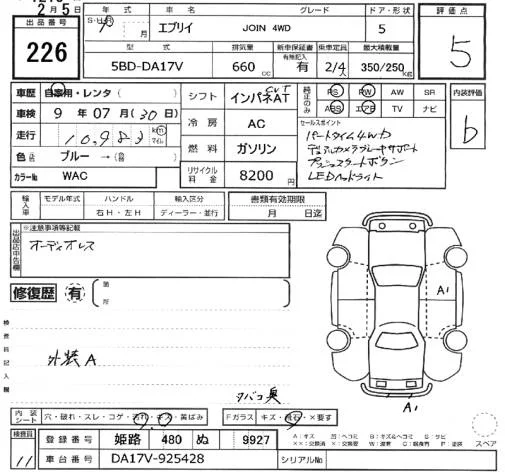 2月5日
出品番号
226
S・H・R
年式
車名
グレード
ドア・形状
評価点
年 月
エブリイ
JOIN 4WD
5
5
型式
排気量
新車保証書
有無記入
乗車定員
最大積載量
5BD-DA17V
660 cc
有
2/4人
350/250 kg
車歴
自家用・レンタ ( )
シフト
インパネAT
CVT
純正のみ
PS PW AW SR
ABS エアB TV ナビ
内装評価
b
車検
9年07月(30日)
冷房
AC
セールスポイント
パートタイム4WD
デュアルカメラブレーキサポート
プッシュスタートボタン
LEDヘッドライト
走行
10,983
km
マイル
燃料
ガソリン
色
ブルー→( )
カラーNo
WAC
リサイクル料金
8200円
輸入車
モデル年式
ハンドル
右H・左H
輸入区分
ディーラー・並行
書類有効期限
月 日迄
出品店申告欄
※注意事項等記載
オーディオレス
修復歴
有
箇所
検査員記入欄
外装A
タバコ臭
A1
A1
内装シート
穴・破れ・スレ・コゲ・汚れ・キズ・黄ばみ
Fガラス
キズ・飛石・×要す
スペア
検査員
11
登録番号
姫路 480 ぬ 9927
車台番号
DA17V-925428
シリアルNo